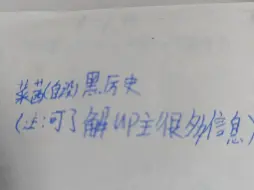 莱茜(自设)黑历史
(注:可了解UP主很多信息)